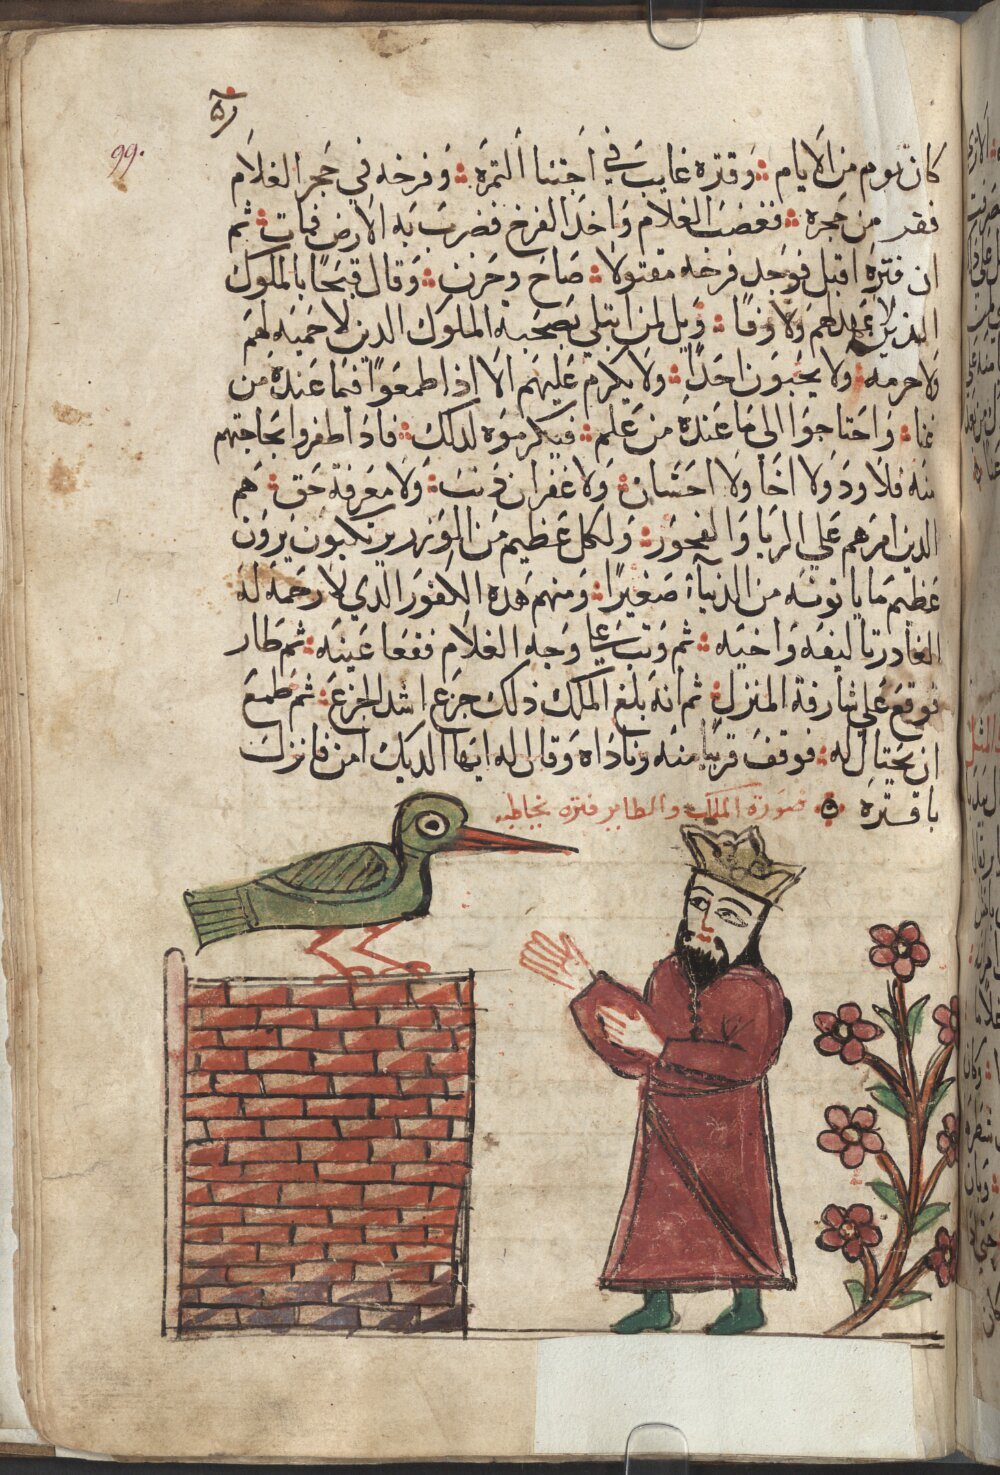 99.
كان يوم من الايام وقتره غايب في اجتنا التمره وفرخه في حجر الغلام
من حجره فغضب الغلام واخذ الفرخ فضرب به الارض فمات ثم
ان قتره اقبل فوجد فرخه مقتولا صاح وحزن وقال قبحا بالملوك
الذين لا عهد لهم ولا وفا ويل لمن ابتلي بصحبة الملوك الذين لا حميه لهم
ولا حرمه ولا يحبون احدا ولا يكرم عليهم الا اذا طمعوا فيما عنده من
غنا واحتاجوا الي ما عنده من علم فيكرموه لذلك فاذا ظفروا بحاجتهم
منه فلا ود ولا اخا ولا احسان ولا غفران ذنب ولا معرفة حق هم
الذين امرهم علي الريا والفجور ولكل عظيم من الوزر يرتكبون يرون
عظيم ما ياتونه من الدنيا صغيرا ومنهم هده الذي لا رحمه له
الغادر باليفه واخيه ثم وتب علي وجه الغلام ففقعا عينيه ثم طار
فوقع علي شارفة المنزل ثم انه بلغ الملك ذلك جزع اشد الجزع ثم طمع
ان يحتال له فوقف قريبا منه وناداه وقال له ايها الديك امن فانزل
يا قتره
صورة الملك والطاير فتره يخاطبه